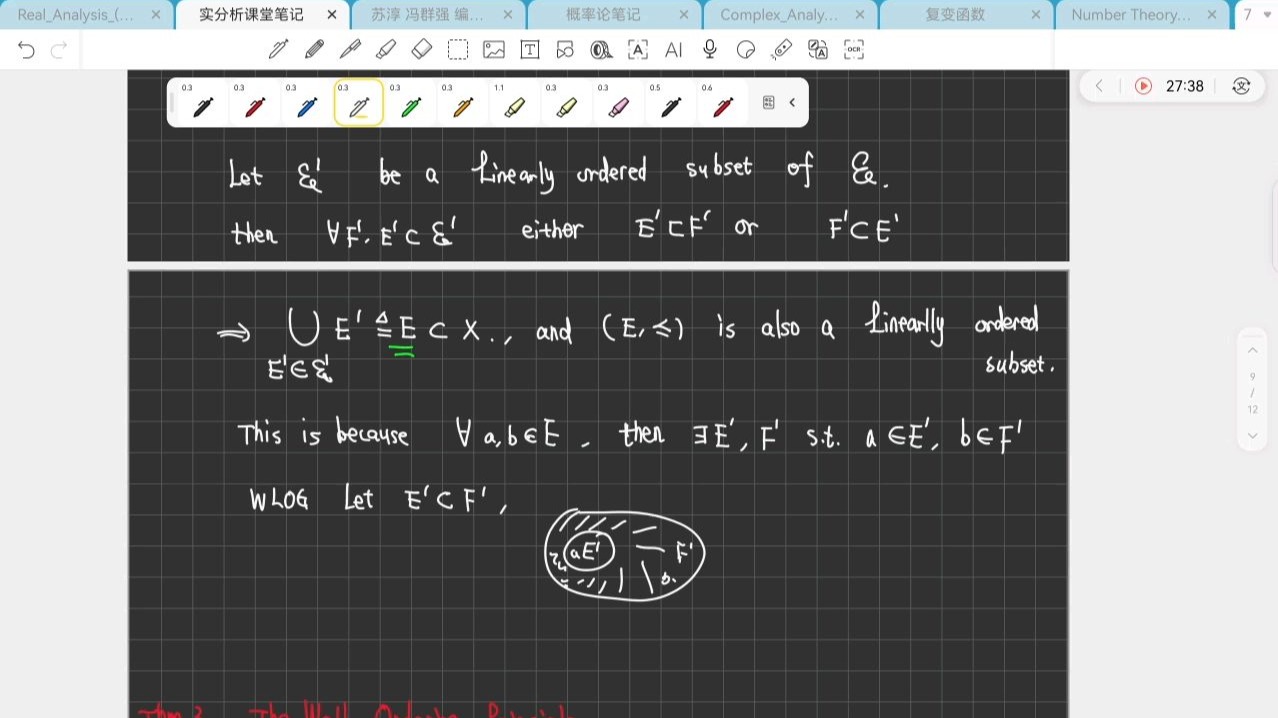 Real_Analysis_(... × 实分析课堂笔记 × 苏淳 冯群强 编... × 概率论笔记 × Complex_Analy... × 复变函数 × Number Theory... × 7
AI OCR
0.3 0.3 0.3 0.3 0.3 0.3 1.1 0.3 0.3 0.5 0.6
27:38
Let ℰ' be a linearly ordered subset of ℰ.
then ∀F'. E' ⊂ ℰ' either E' ⊂ F' or F' ⊂ E'
⇒ ⋃ E' ≜ E ⊂ X., and (E, ≤) is also a linearlly ordered
E' ∈ ℰ' subset.
This is because ∀ a, b ∈ E, then ∃E', F' s.t. a ∈ E', b ∈ F'
WLOG Let E' ⊂ F',
a E' F'
b.
9
/
12